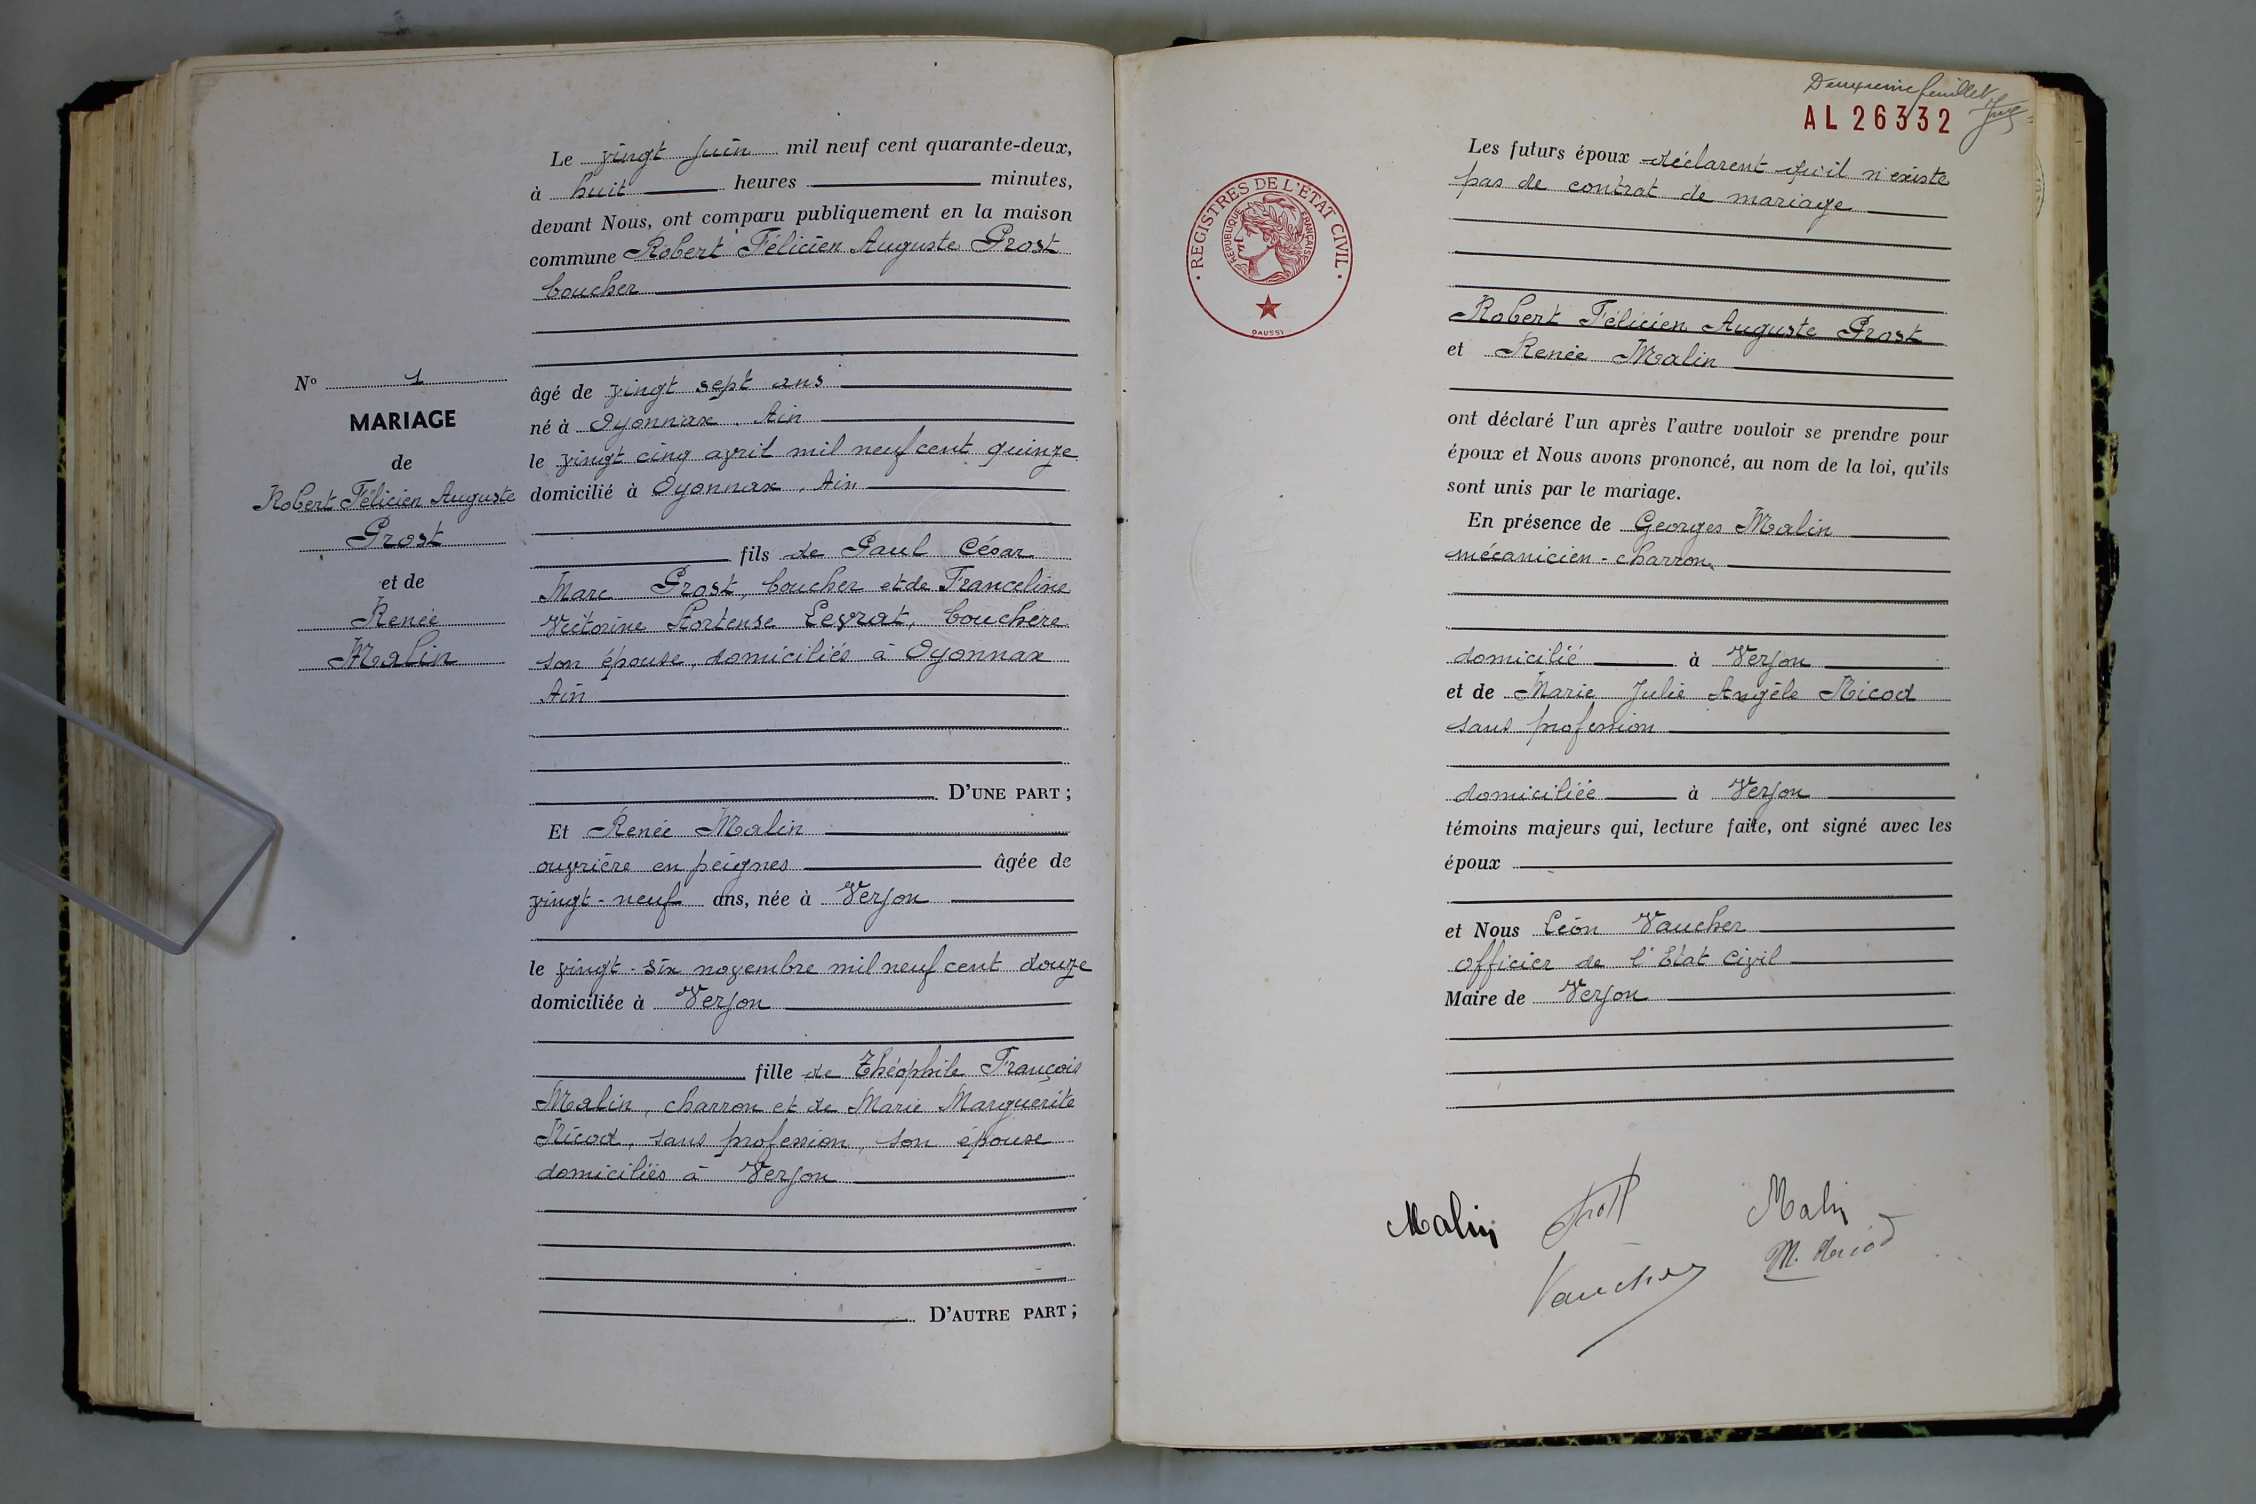 N° 1
MARIAGE
de
Robert Félicien Auguste
Grost
et de
Renée
Malin
Le vingt Juin mil neuf cent quarante-deux,
à huit heures minutes,
devant Nous, ont comparu publiquement en la maison
commune Robert Félicien Auguste Grost
boucher
âgé de vingt sept ans
né à Oyonnax, Ain
le vingt cinq avril mil neuf cent quinze
domicilié à Oyonnax, Ain
fils de Paul César
Marc Grost, boucher et de Franceline
Victorine Hortense Levrat, bouchère
son épouse, domiciliés à Oyonnax
Ain
D'UNE PART ;
Et Renée Malin
ouvrière en peignes âgée de
vingt-neuf ans, née à Verjon
le vingt-six novembre mil neuf cent douze
domiciliée à Verjon
fille de Théophile François
Malin, charron et de Marie Marguerite
Nicod, sans profession, son épouse
domiciliés à Verjon
D'AUTRE PART ;
Deuxième feuillet
AL 26332
REGISTRES DE L'ETAT CIVIL
REPUBLIQUE FRANÇAISE
DAUSSY
Les futurs époux déclarent qu'il n'existe
pas de contrat de mariage
Robert Félicien Auguste Grost
et Renée Malin
ont déclaré l'un après l'autre vouloir se prendre pour
époux et Nous avons prononcé, au nom de la loi, qu'ils
sont unis par le mariage.
En présence de Georges Malin
mécanicien-charron
domicilié à Verjon
et de Marie Julie Angèle Nicod
sans profession
domiciliée à Verjon
témoins majeurs qui, lecture faite, ont signé avec les
époux
et Nous Léon Vaucher
officier de l'Etat Civil
Maire de Verjon
Malin Grost Malin
Vaucher M. Nicod